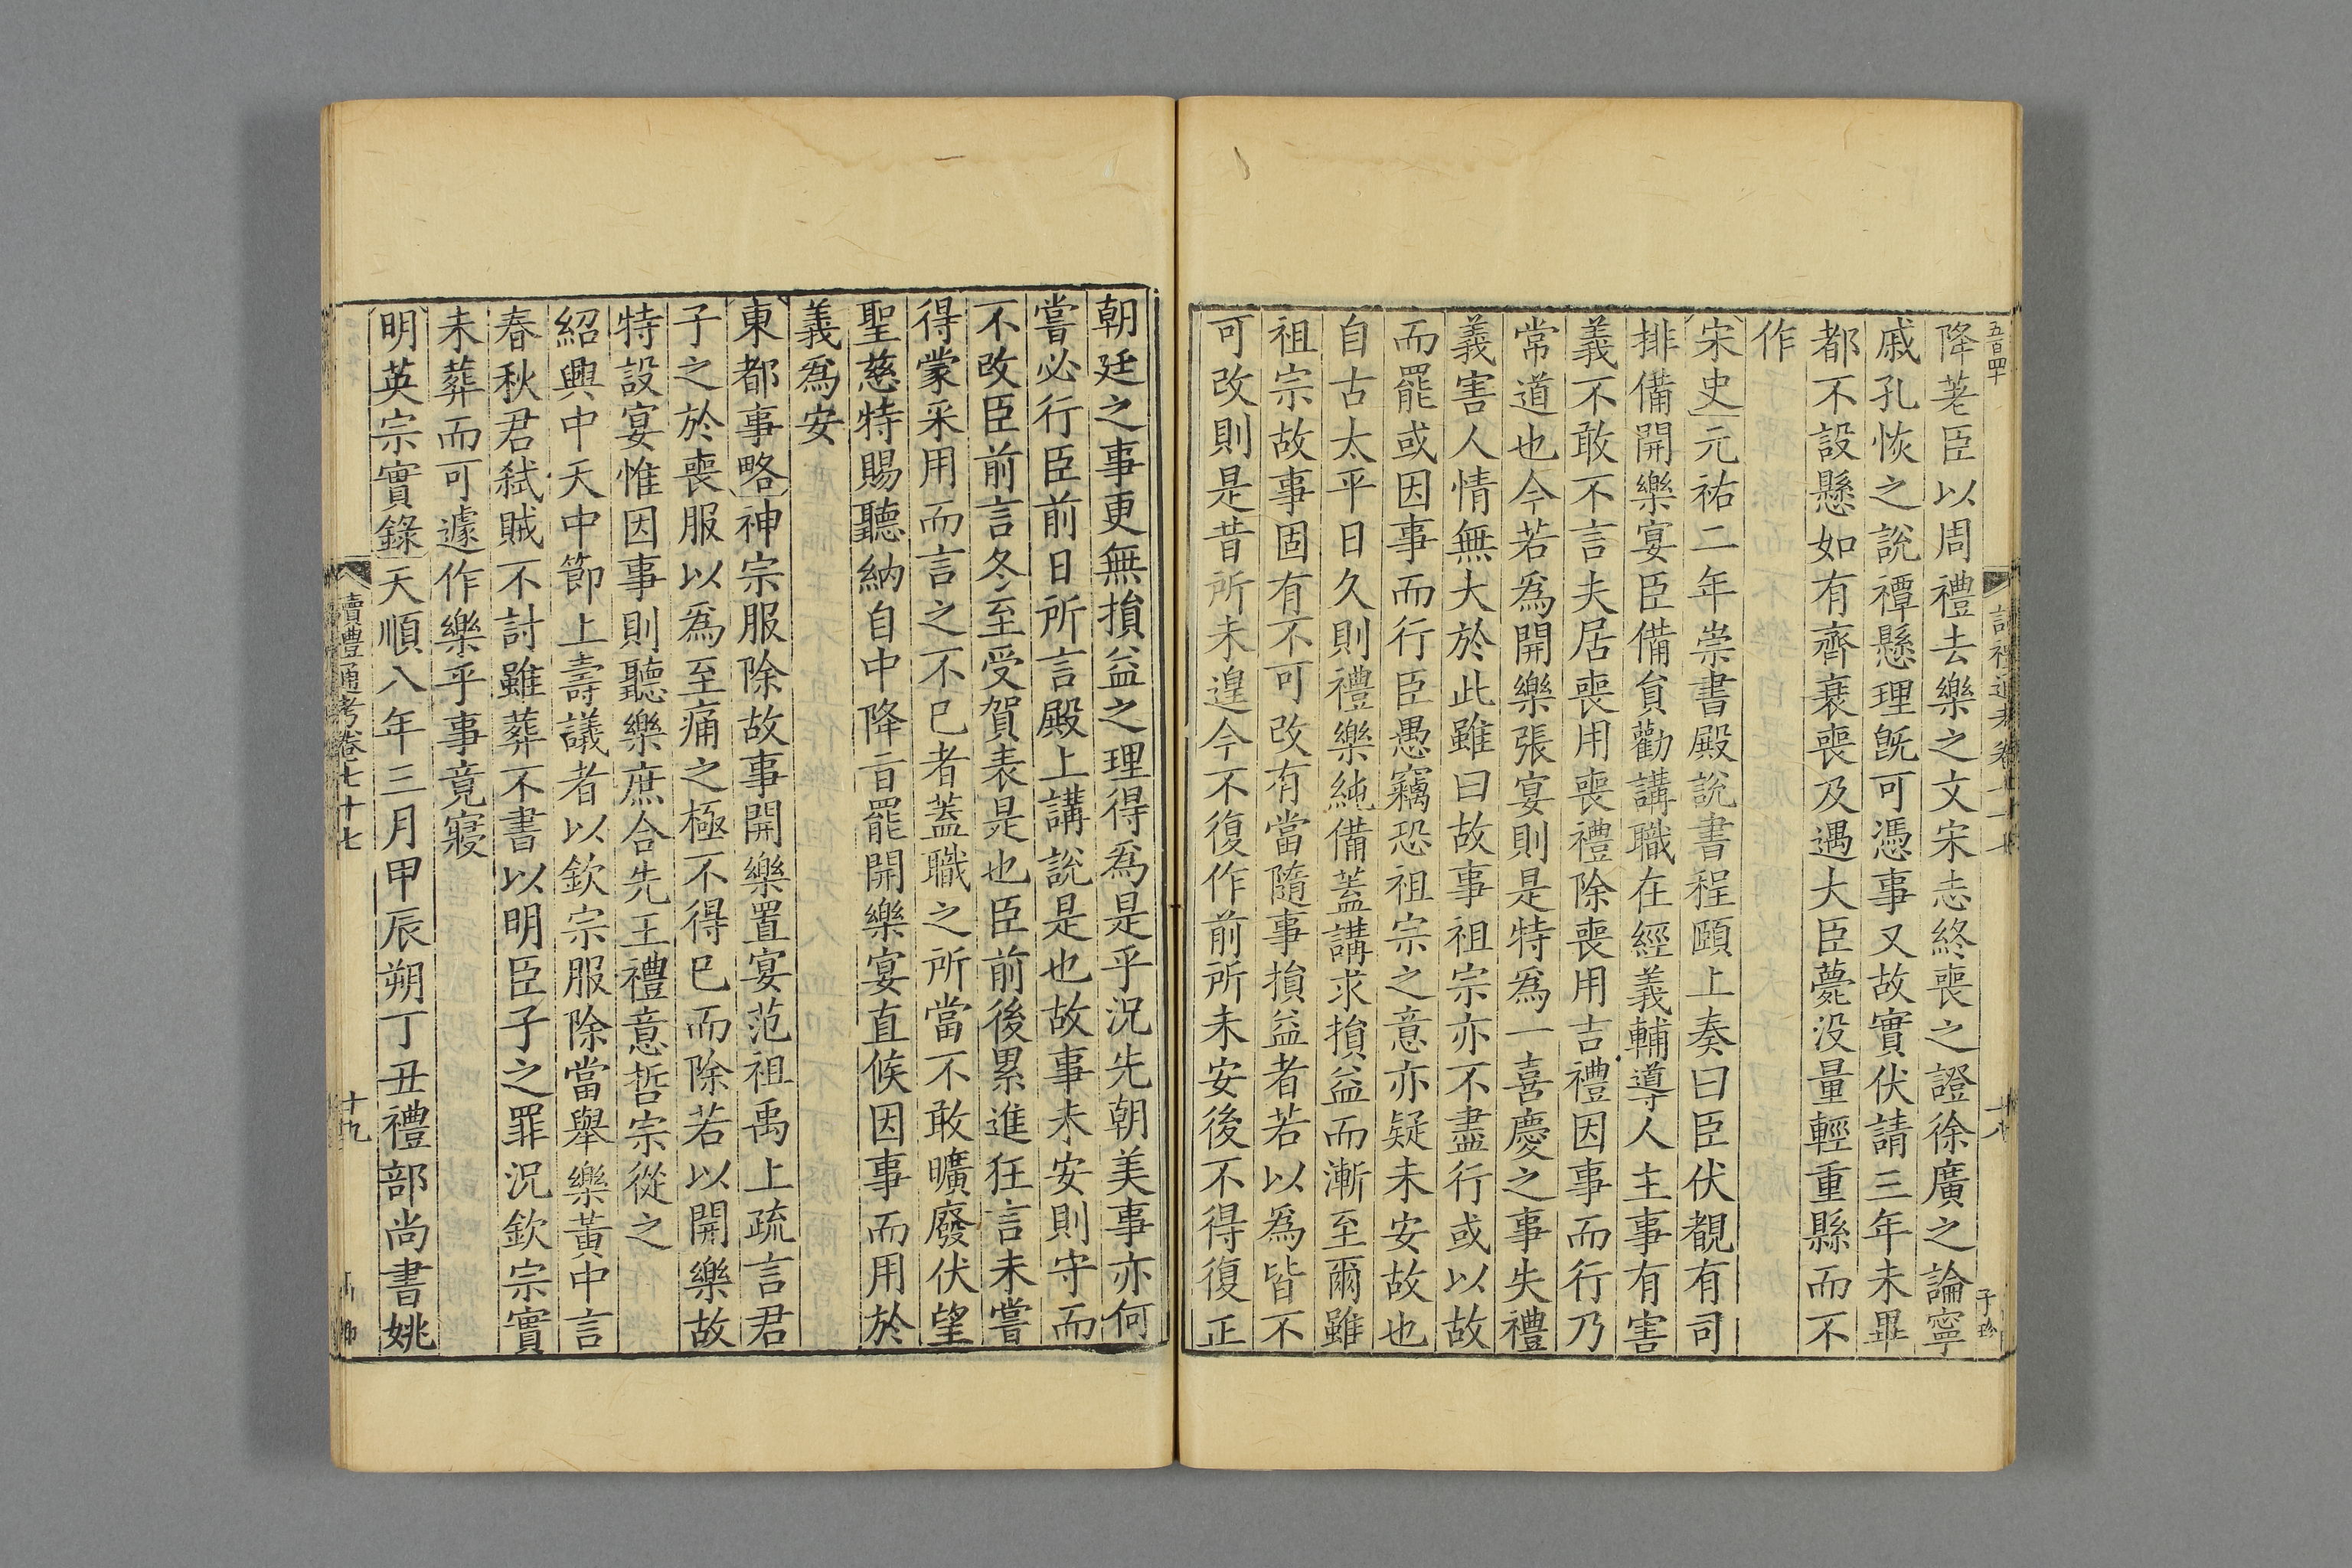 五百四十
降茖臣以周禮去樂之文宋志終喪之證徐廣之論寧
戚孔恢之說禫懸理旣可憑事又故實伏請三年未畢
都不設懸如有齊衰喪及遇大臣薨没量輕重縣而不
作
宋史元祐二年崇書殿說書程頤上奏曰臣伏覩有司
排備開樂宴臣備貟勸講職在經義輔導人主事有害
義不敢不言夫居喪用喪禮除喪用吉禮因事而行乃
常道也今若爲開樂張宴則是特爲一喜慶之事失禮
義害人情無大於此雖曰故事祖宗亦不盡行或以故
而罷或因事而行臣愚竊恐祖宗之意亦疑未安故也
自古太平日久則禮樂純備蓋講求損益而漸至爾雖
祖宗故事固有不可改有當隨事損益者若以爲皆不
可改則是昔所未遑今不復作前所未安後不得復正
朝廷之事更無損益之理得爲是乎況先朝美事亦何
嘗必行臣前日所言殿上講說是也故事未安則守而
不改臣前言冬至受賀表是也臣前後累進狂言未嘗
得蒙采用而言之不已者蓋職之所當不敢曠廢伏望
聖慈特賜聽納自中降㫖罷開樂宴直候因事而用於
義爲安
東都事略神宗服除故事開樂置宴范祖禹上疏言君
子之於喪服以爲至痛之極不得已而除若以開樂故
特設宴惟因事則聽樂庶合先王禮意哲宗從之
紹興中天中節上壽議者以欽宗服除當舉樂黃中言
春秋君弑賊不討雖葬不書以明臣子之罪況欽宗實
未葬而可遽作樂乎事竟寢
明英宗實錄天順八年三月甲辰朔丁丑禮部尚書姚
讀禮通考卷七十七
十九